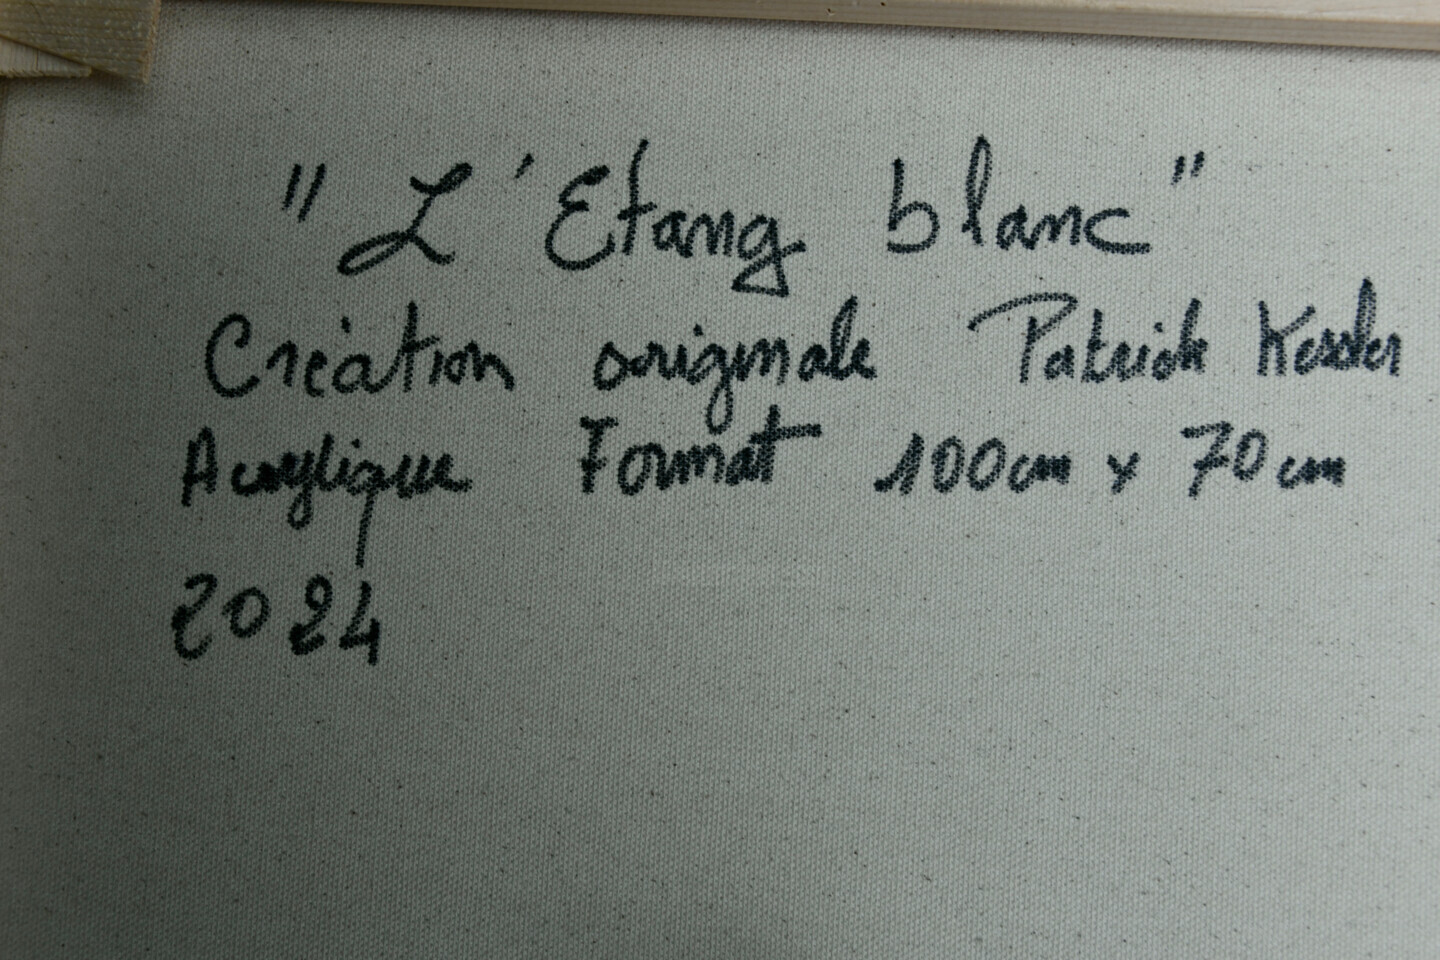 "L'Etang blanc"
Création originale Patrick Kessler
Acrylique Format 100cm x 70cm
2024